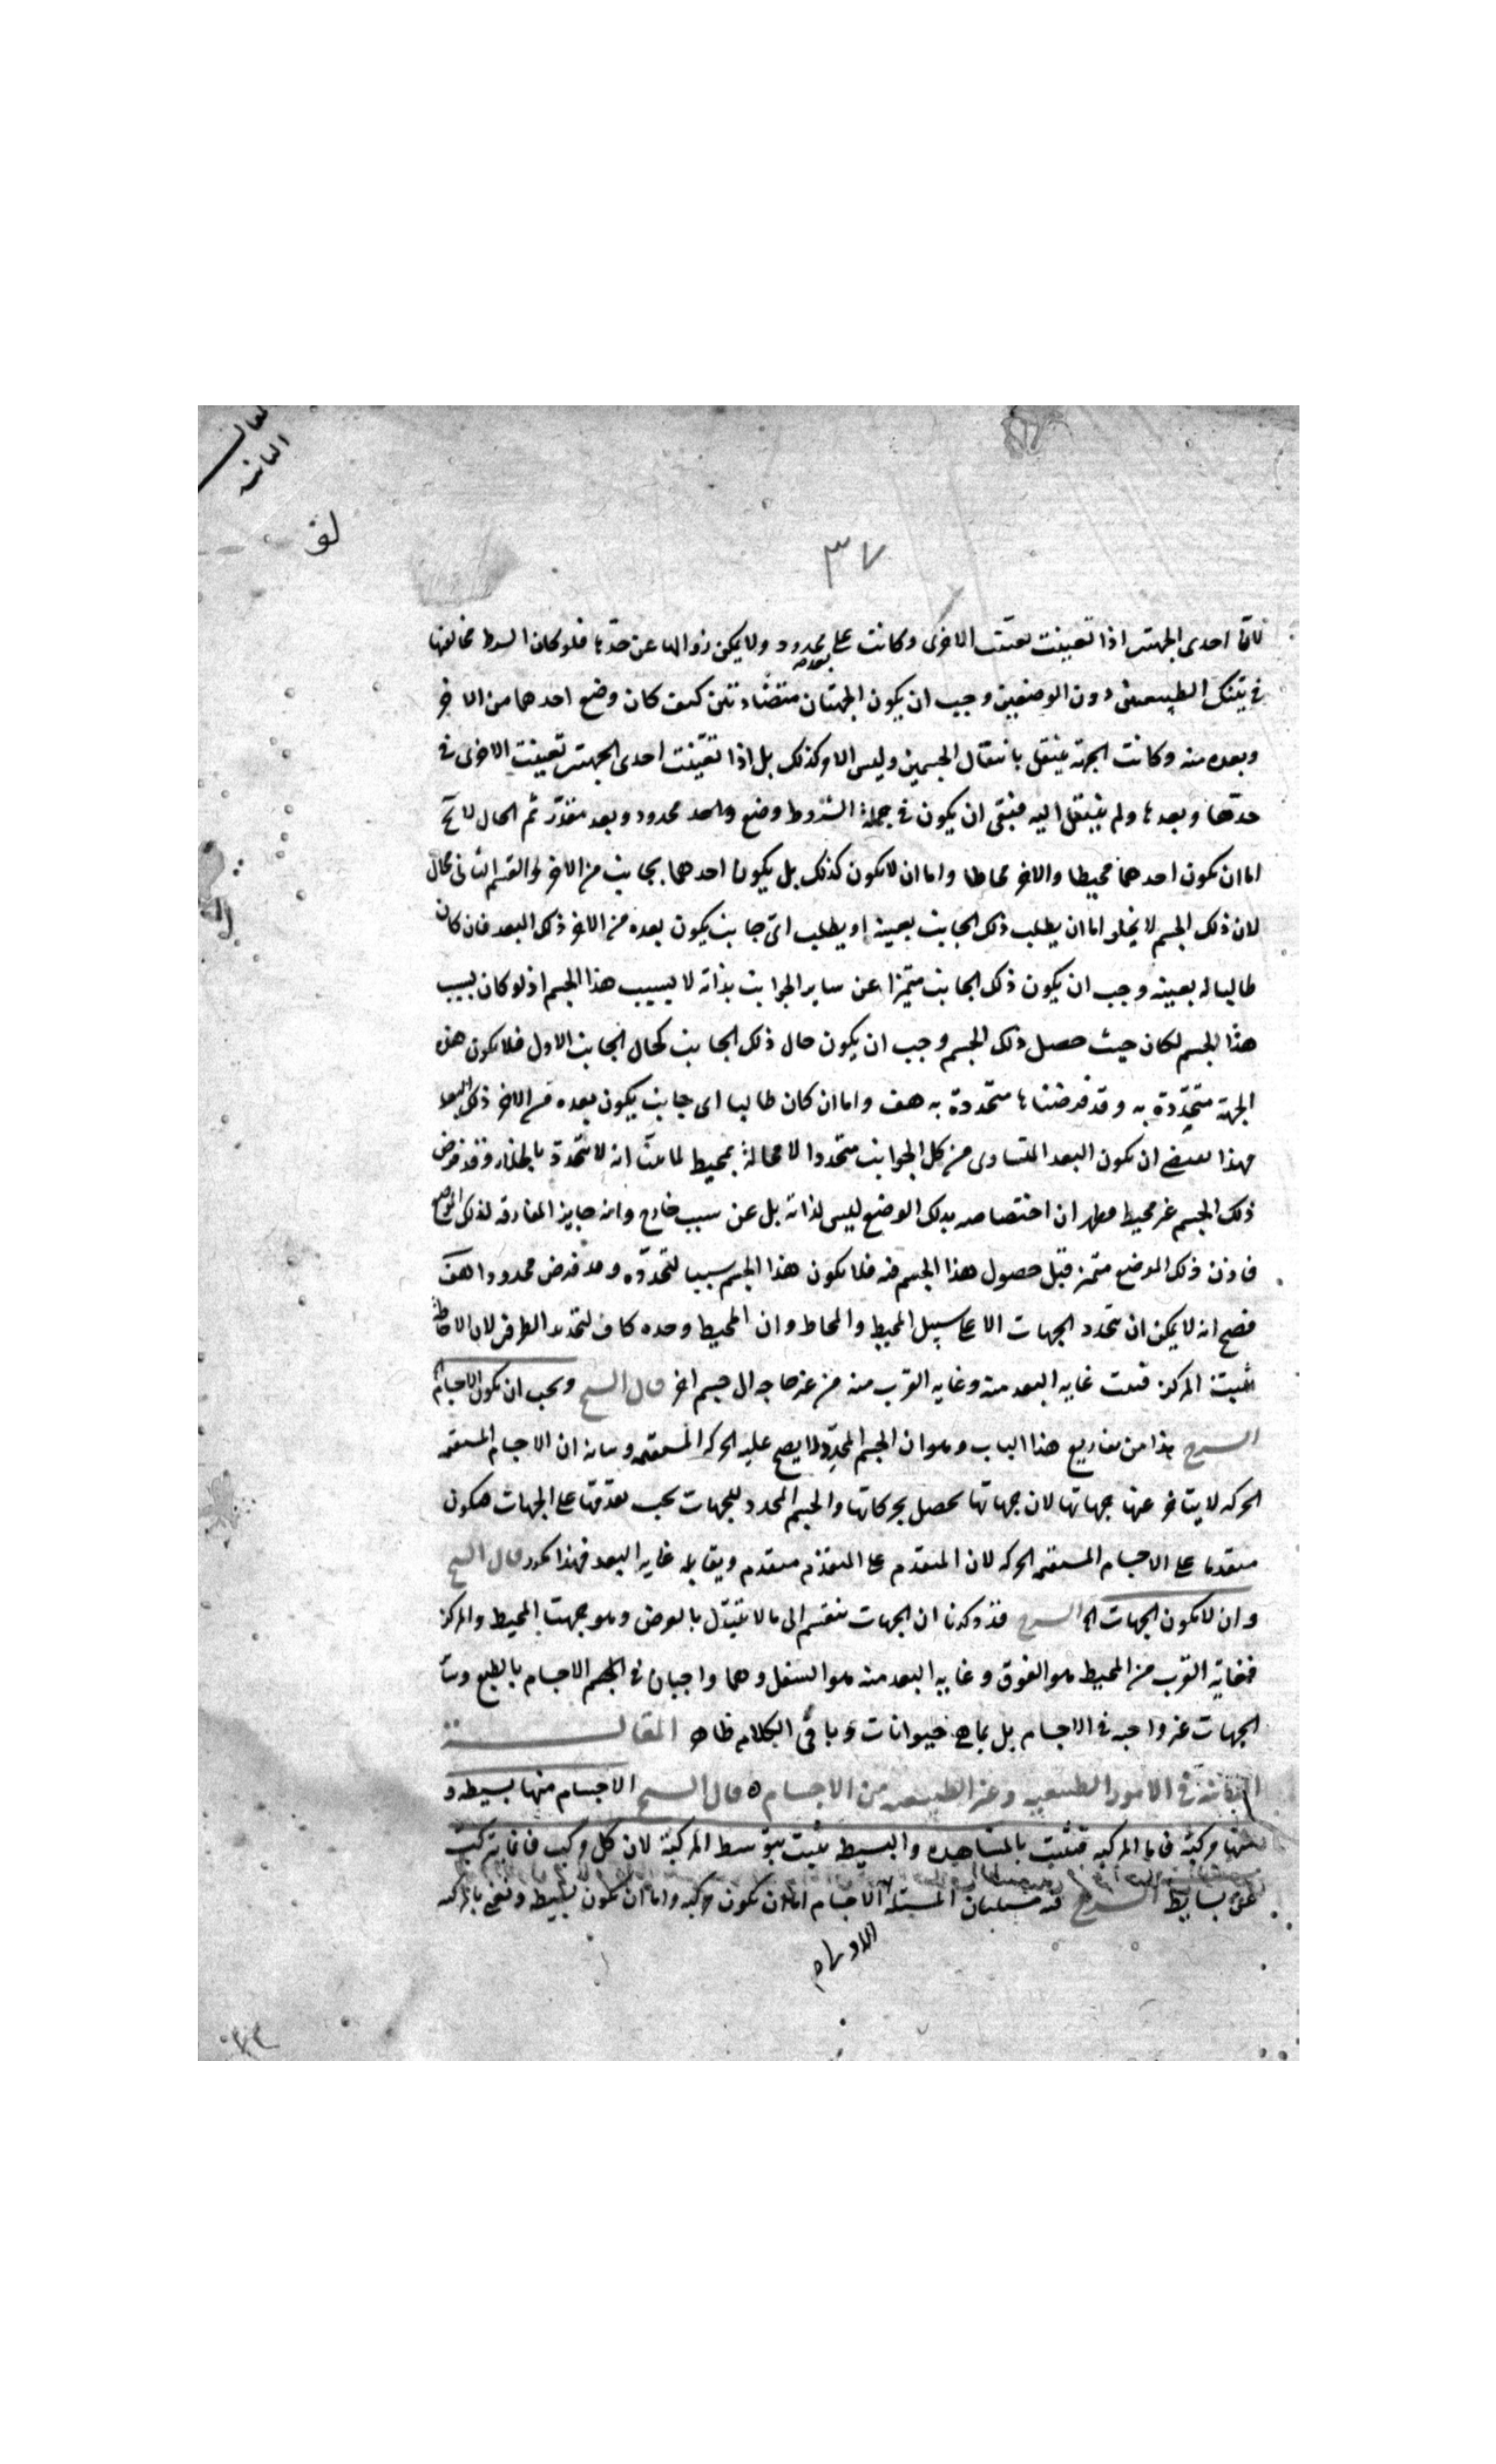 المقالة
الثانية
لو
٣٧
فان احدى الجهتين اذا تعينت تعينت الاخرى وكانت على بعد محدود ولا يمكن زوالها عن حدها فلو كان الشرط تخالفهما
في تينك الطبيعتين دون الوضعين وجب ان يكون الجهتان متضادتين كيف كان وضع احدهما من الاخر
وبعده منه وكانت الجهة ينتقل بانتقال الجسمين وليس الامر كذلك بل اذا تعينت احدى الجهتين تعينت الاخرى في
حدها وبعدها ولم ينتقل اليه فبقى ان يكون في جملة الشروط وضع واحد محدود وبعد مقدر ثم الحال لا يخ
اما ان يكون احدهما محيطا والاخر محاطا واما ان لا يكون كذلك بل يكون احدهما بجانب من الاخر والقسم الثاني محال
لان ذلك الجسم لا يخلو اما ان يطلب ذلك الجانب بعينه او يطلب اي جانب يكون بعده من الاخر ذلك البعد فان كان
طالبا له بعينه وجب ان يكون ذلك الجانب متميزا عن ساير الجوانب بذاته لا بسبب هذا الجسم اذ لو كان بسبب
هذا الجسم لكان حيث حصل ذلك الجسم وجب ان يكون حال ذلك الجانب كحال الجانب الاول فلا يكون هذه
الجهة متحددة به وقد فرضناها متحددة به هف واما ان كان طالبا اي جانب يكون بعده من الاخر ذلك البعد
فهذا يقتضي ان يكون البعد المتساوى من كل الجوانب متحددا لا محالة بمحيط لما بينا انه لا تتحدد بالخلاء وقد فرض
ذلك الجسم غير محيط فظهر ان اختصاصه بذلك الوضع ليس لذاته بل عن سبب خارج وانه جايز المفارقه لذلك الموضع
فاذن ذلك الموضع متميز قبل حصول هذا الجسم فيه فلا يكون هذا الجسم سببا لتحدده وقد فرض محدودا هف
فصح انه لا يمكن ان تتحدد الجهات الا على سبيل المحيط والمحاط وان المحيط وحده كاف لتحديد الطرفين لان الاحاطة
تثبت المركز فتثبت غايه البعد منه وغايه القرب منه من غير حاجه الى جسم اخر قال الشيخ ويجب ان يكون الاجسام
الشرح هذا من تفاريع هذا الباب وهو ان الجسم المحدد لا يصح عليه الحركه المستقيمه وبيانه ان الاجسام المستقيمه
الحركه لا يتاخر عنها جهاتها لان جهاتها تحصل بحركاتها والجسم المحدد للجهات يجب تقدمه على الجهات فيكون
متقدما على الاجسام المستقيمه الحركه لان المتقدم على المتقدم متقدم ويقابله غايه البعد فهذا قال الشيخ
وان لا يكون الجهات الخ الشرح قد ذكرنا ان الجهات تنقسم الى ما لا يتبدل بالعرض وهو جهتا المحيط والمركز
فغاية القرب من المحيط هو الفوق وغايه البعد منه هو السفل وهما واجبان في الاجسام بالطبع وساير
الجهات غير واجبه في الاجسام بل بما هي حيوانات وباقي الكلام ظاهر المقالــــــة
الثانية في الامور الطبيعيه وغير الطبيعيه من الاجسام ه قال الشيخ الاجسام منها بسيطه و
منها مركبة فاما المركبه فتثبت بالمشاهده والبسيطه تثبت بتوسط المركبة لان كل مركب فانما يتركب
عن بسايط الشرح فيه مسئلتان المسئلة الاولى الاجسام اما ان تكون مركبه واما ان تكون بسيطه ونعني بالمركبه